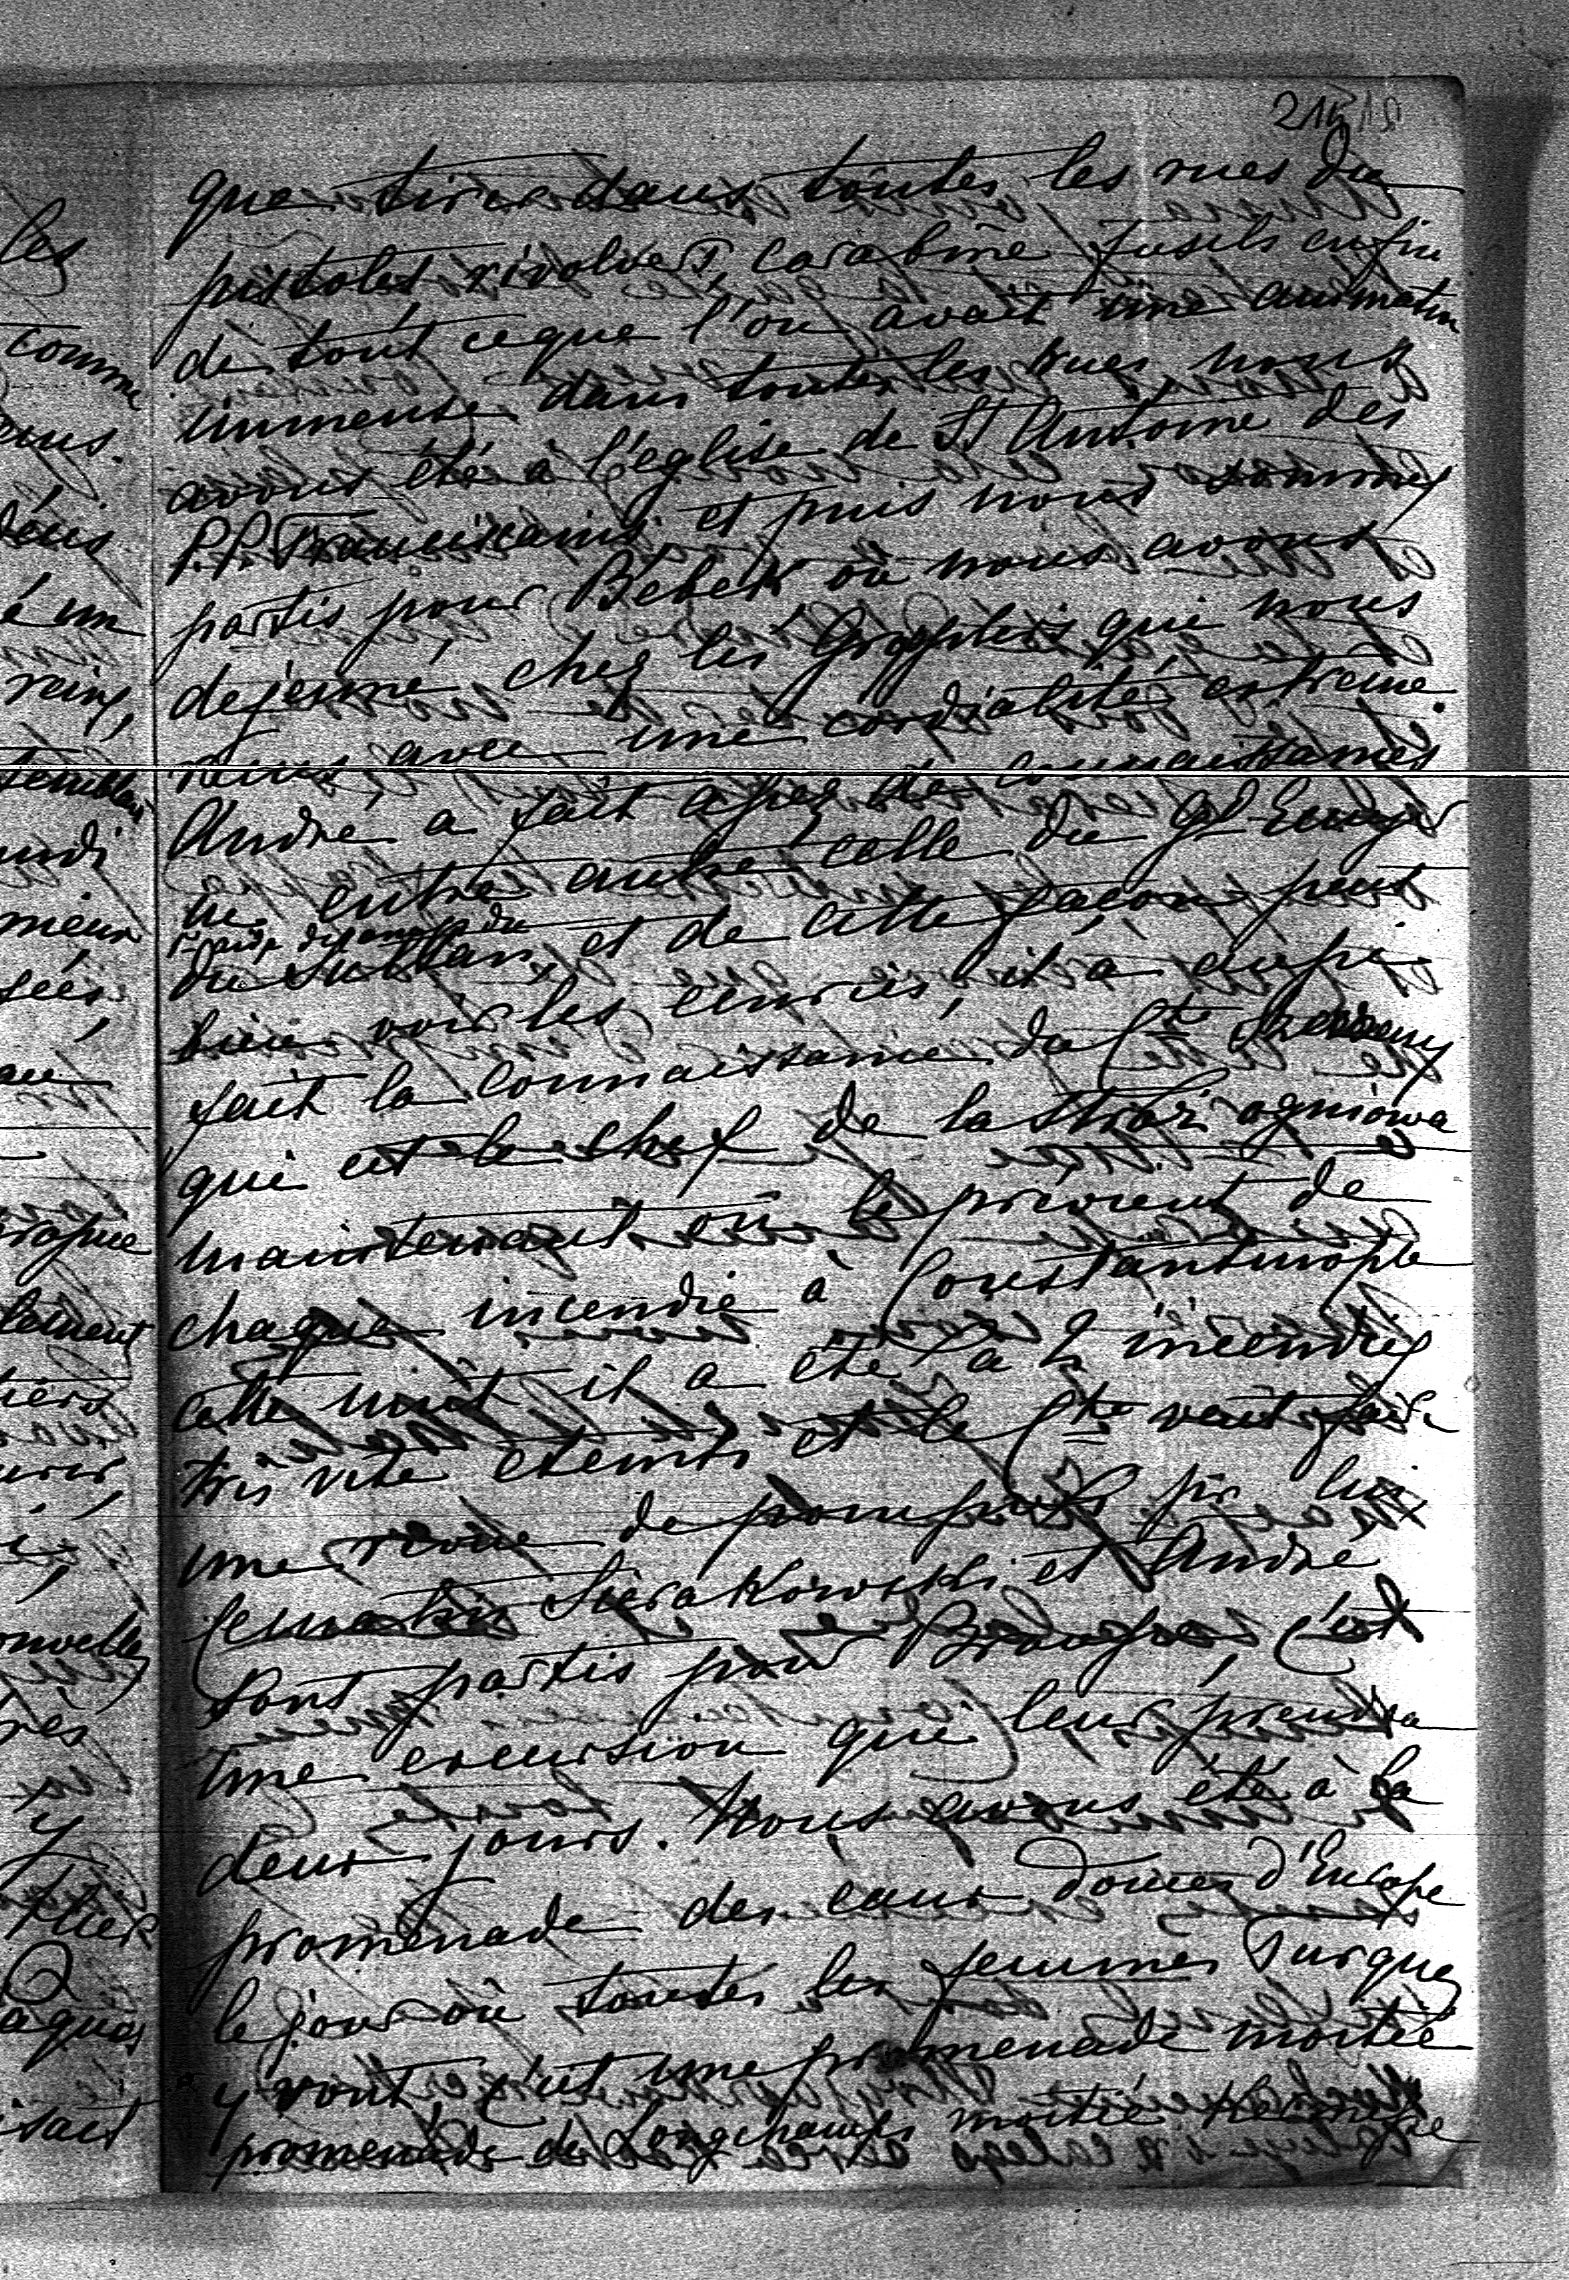 215
que tirer dans toutes les rues du
pistolet révolvers, carabine fusils enfin
de tout ceque l'on avait une animation
immense dans toutes les rues nous
avons été à l'église de St Antoine des
P.P. Franciscains et puis nous sommes
partis pour Bebek où nous avons
dejeuné chez les qui nous
reçus avec une cordialité extrême.
André a fait assez de connaissances
entre autre celle du Gl
du Sultan, et de cette façon peut
bien voir les écuries, il a aussi
fait la connaissance du Cte
qui est le chef de la straż ogniowa
maintenant on le prévient de
chaque incendie à Constantinople
cette nuit il a été à 2 incendies
très vite éteints et le Cte veut faire
une revue de pompiers pr lui
Ce matin Sierakowski et André
sont partis pour Brousse c'est
une excursion qui leur prendra
deux jours. Nous avons été à la
promenade des eaux douces d'Europe
le jour où toutes les femmes Turques
y vont c'est une promenade moitié
promenade de Longchamps moitié